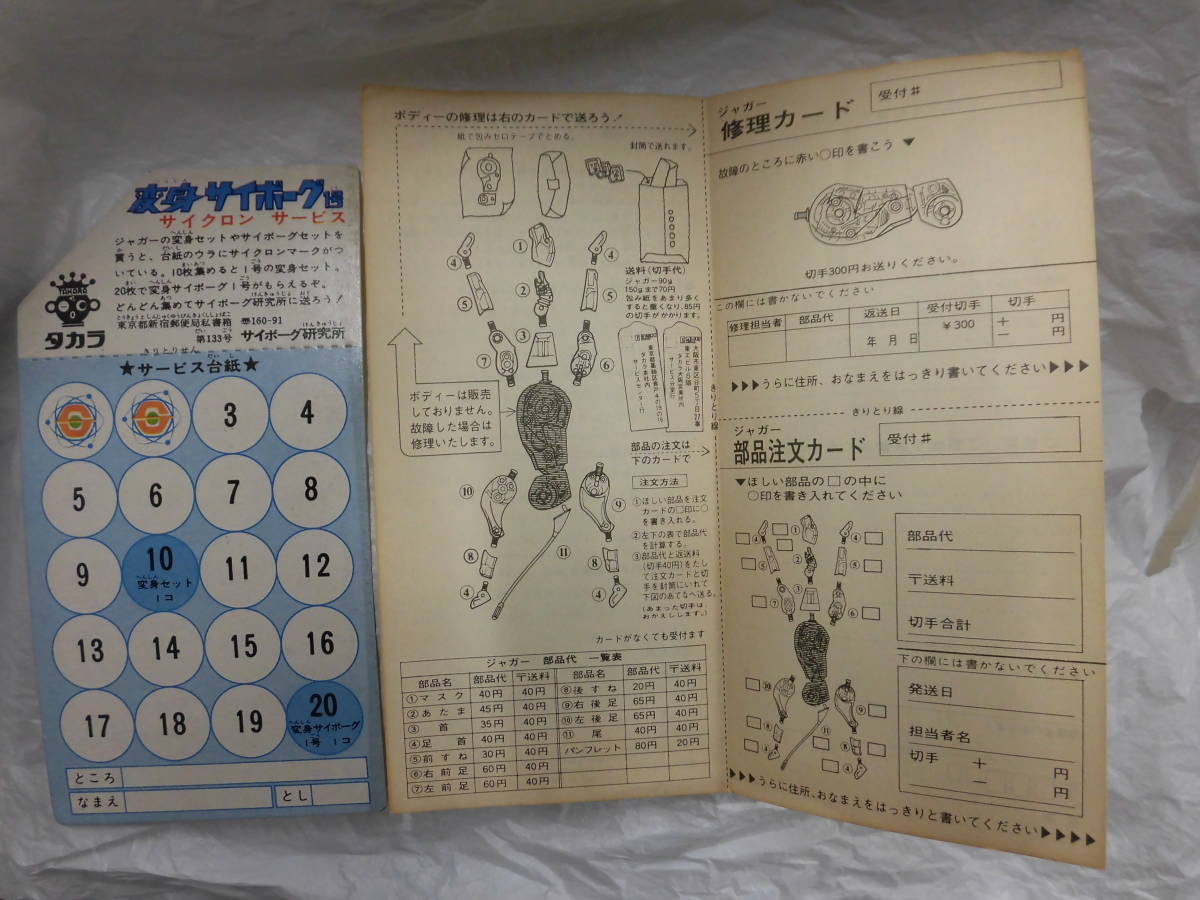 変身サイボーグ1号
サイクロン サービス
ジャガーの変身セットやサイボーグセットを
買うと、台紙のウラにサイクロンマークがつ
いている。10枚集めると1号の変身セット。
20枚で変身サイボーグ1号がもらえるぞ。
どんどん集めてサイボーグ研究所に送ろう!
東京都新宿郵便局私書箱 〒160-91
第133号 サイボーグ研究所
TAKARA
タカラ
きりとりせん
★サービス台紙★
3 4
5 6 7 8
9 10 11 12
変身セット
1コ
13 14 15 16
17 18 19 20
変身サイボーグ
1号 1コ
ところ
なまえ とし
ボディーの修理は右のカードで送ろう!
紙で包みセロテープでとめる。
封筒で送れます。
送料(切手代)
ジャガー90g
150gまで70円
包み紙をあまり多く
すると重くなり、85円
の切手がかかります。
④ ① ④
⑤ ② ⑤
⑦ ③ ⑥
ボディーは販売
しておりません。
故障した場合は
修理いたします。
部品の注文は
下のカードで
注文方法
①ほしい部品を注文
カードの□印に○
を書き入れる。
②左下の表で部品代
を計算する。
③部品代と返送料
(切手40円)をたし
て注文カードと切
手を封筒にいれて
下図のあてなへ送る。
(あまった切手は
おかえしします。)
⑩ ⑨
⑧ ⑪ ⑧
④ ④
カードがなくても受付ます
ジャガー 部品代 一覧表
部品名 部品代 〒送料 部品名 部品代 〒送料
①マスク 40円 40円 ⑧後すね 20円 40円
②あたま 45円 40円 ⑨右後足 65円 40円
③首 35円 40円 ⑩左後足 65円 40円
④足首 40円 40円 ⑪尾 40円 40円
⑤前すね 30円 40円 パンフレット 80円 20円
⑥右前足 60円 40円
⑦左前足 60円 40円
きりとり線
ジャガー
修理カード
受付#
故障のところに赤い○印を書こう▼
切手300円お送りください。
この欄には書かないでください
修理担当者 部品代 返送日 受付切手 切手
年 月 日 ¥300 + 円
− 円
▶▶▶▶うらに住所、おなまえをはっきり書いてください▶▶▶
きりとり線
ジャガー
部品注文カード
受付#
▼ほしい部品の□の中に
○印を書き入れてください
④ ① ④
⑤ ② ⑤
⑦ ③ ⑥
⑩ ⑨
⑧ ⑪ ⑧
④ ④
部品代
〒送料
切手合計
下の欄には書かないでください
発送日
担当者名
切手 + 円
− 円
▶▶▶▶うらに住所、おなまえをはっきりと書いてください▶▶▶▶